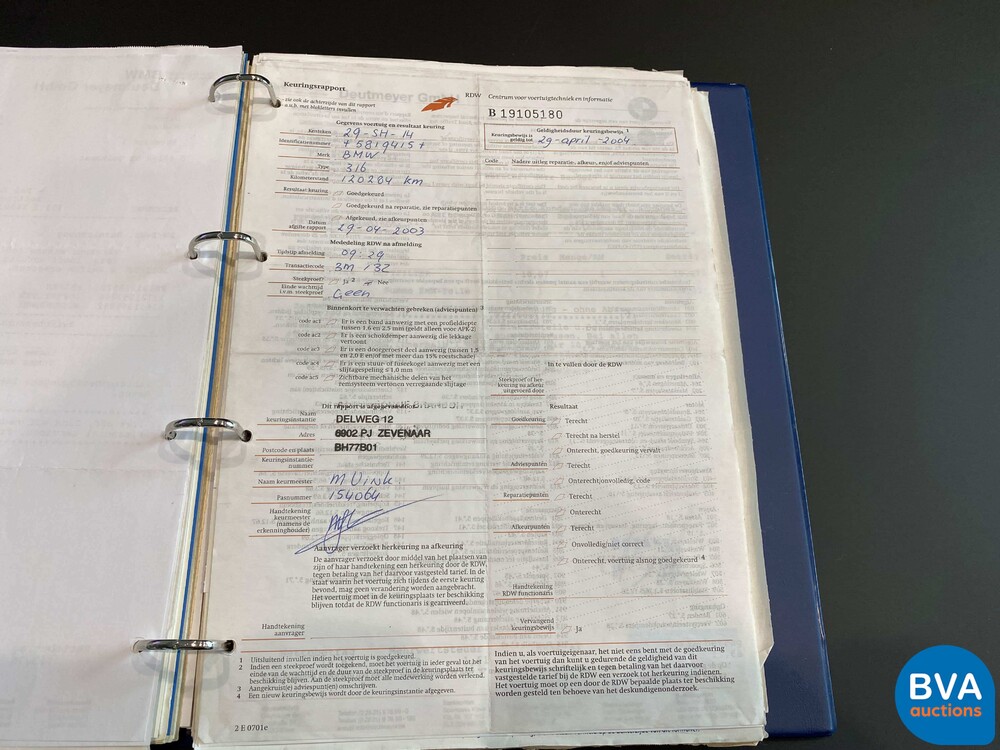 Keuringsrapport
zie ook de achterzijde van dit rapport
a.u.b. met blokletters invullen
RDW
Centrum voor voertuigtechniek en informatie
B 19105180
Gegevens voertuig en resultaat keuring
Kenteken 29-SH-14
Identificatienummer + 5819415 +
Merk BMW
Type 316
Kilometerstand 120284 km
Resultaat keuring Goedgekeurd
Goedgekeurd na reparatie, zie reparatiepunten
Afgekeurd, zie afkeurpunten
Datum afgifte rapport 29-04-2003
Mededeling RDW na afmelding
Tijdstip afmelding 09:29
Transactiecode 3M 132
Steekproef? Ja 2 Nee
Einde wachttijd i.v.m. steekproef Geen
Binnenkort te verwachten gebreken (adviespunten) 3
code ac1 Er is een band aanwezig met een profieldiepte
tussen 1,6 en 2,5 mm (geldt alleen voor APK-2)
code ac2 Er is een schokdemper aanwezig die lekkage
vertoont
code ac3 Er is een doorgeroest deel aanwezig (tussen 1,5
en 2,0 E en/of met meer dan 15% roestschade)
code ac4 Er is een stuur- of fuseekogel aanwezig met een
slijtagespeling ≤ 1,0 mm
code ac5 Zichtbare mechanische delen van het
remsysteem vertonen verregaande slijtage
Dit rapport is afgegeven door
Naam keuringsinstantie DELWEG 12
Adres 6902 PJ ZEVENAAR
BH77B01
Postcode en plaats
Keuringsinstantie-
nummer
Naam keurmeester M Vink
Pasnummer 154064
Handtekening
keurmeester
(namens de
erkenninghouder)
Aanvrager verzoekt herkeuring na afkeuring
De aanvrager verzoekt door middel van het plaatsen van
zijn of haar handtekening een herkeuring door de RDW,
tegen betaling van het daarvoor vastgesteld tarief. In de
staat waarin het voertuig zich tijdens de eerste keuring
bevond, mag geen verandering worden aangebracht.
Het voertuig moet in de keuringsplaats ter beschikking
blijven totdat de RDW functionaris is gearriveerd.
Handtekening
aanvrager
1 Uitsluitend invullen indien het voertuig is goedgekeurd.
2 Indien een steekproef wordt toegekend, moet het voertuig in ieder geval tot het
einde van de wachttijd en de duur van de steekproef in de keuringsplaats ter
beschikking blijven. Aan de steekproef moet alle medewerking worden verleend.
3 Aangekruist(e) adviespunt(en) omschrijven.
4 Een nieuw keuringsbewijs wordt door de keuringsinstantie afgegeven.
2 E 0701e
Geldigheidsduur keuringsbewijs 1
Keuringsbewijs is
geldig tot 29-april-2004
Code Nadere uitleg reparatie-, afkeur-, en/of adviespunten
In te vullen door de RDW
Steekproef of her-
keuring na afkeur
uitgevoerd door
Resultaat
Goedkeuring Terecht
Terecht na herstel
Onterecht, goedkeuring vervalt
Adviespunten Terecht
Onterecht/onvolledig, code
Reparatiepunten Terecht
Onterecht
Afkeurpunten Terecht
Onvolledig/niet correct
Onterecht, voertuig alsnog goedgekeurd 4
Handtekening
RDW functionaris
Vervangend
keuringsbewijs Ja
Indien u, als voertuigeigenaar, het niet eens bent met de goedkeuring
van het voertuig dan kunt u gedurende de geldigheid van dit
keuringsbewijs schriftelijk en tegen betaling van het daarvoor
vastgestelde tarief bij de RDW een verzoek tot herkeuring indienen.
Het voertuig moet op een door de RDW bepaalde plaats ter beschikking
worden gesteld ten behoeve van het deskundigenonderzoek.
BVA
auctions